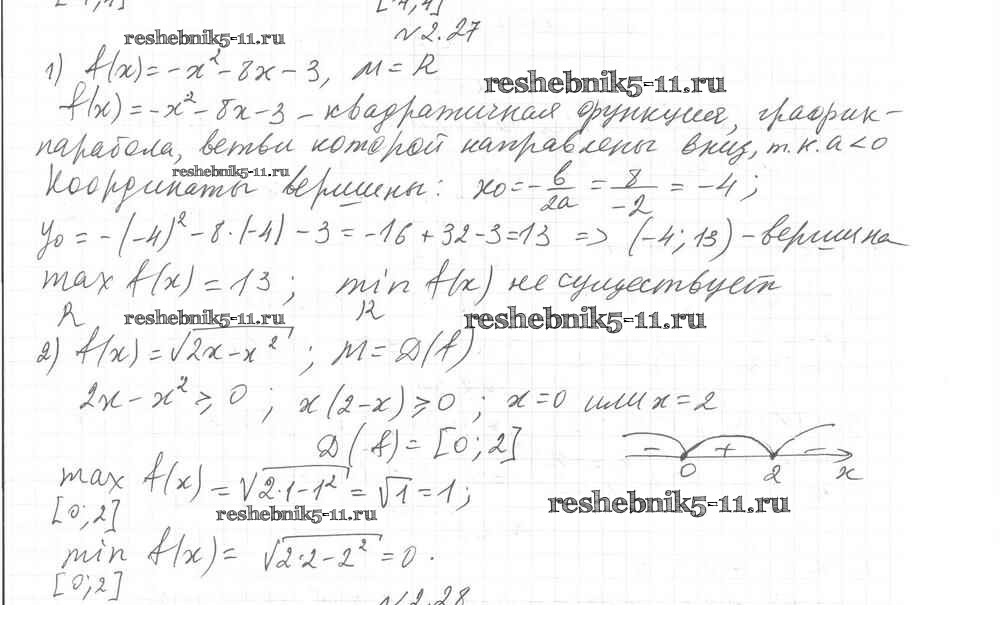 [-1; 1] [-4; 4]
№2.27
reshebnik5-11.ru
1) f(x) = -x² - 8x - 3, M = R
reshebnik5-11.ru
f(x) = -x² - 8x - 3 - квадратичная функция, график -
парабола, ветви которой направлены вниз, т.к. a < 0
reshebnik5-11.ru
Координаты вершины: x₀ = -b/2a = 8/-2 = -4;
y₀ = -(-4)² - 8·(-4) - 3 = -16 + 32 - 3 = 13 => (-4; 13) - вершина
max f(x) = 13; min f(x) не существует
R R
reshebnik5-11.ru reshebnik5-11.ru
2) f(x) = √2x - x²; M = D(f)
2x - x² ≥ 0; x(2 - x) ≥ 0; x = 0 или x = 2
D(f) = [0; 2]
- + -
0 2 x
max f(x) = √2·1 - 1² = √1 = 1;
[0; 2]
reshebnik5-11.ru
reshebnik5-11.ru
min f(x) = √2·2 - 2² = 0.
[0; 2]
№2.28